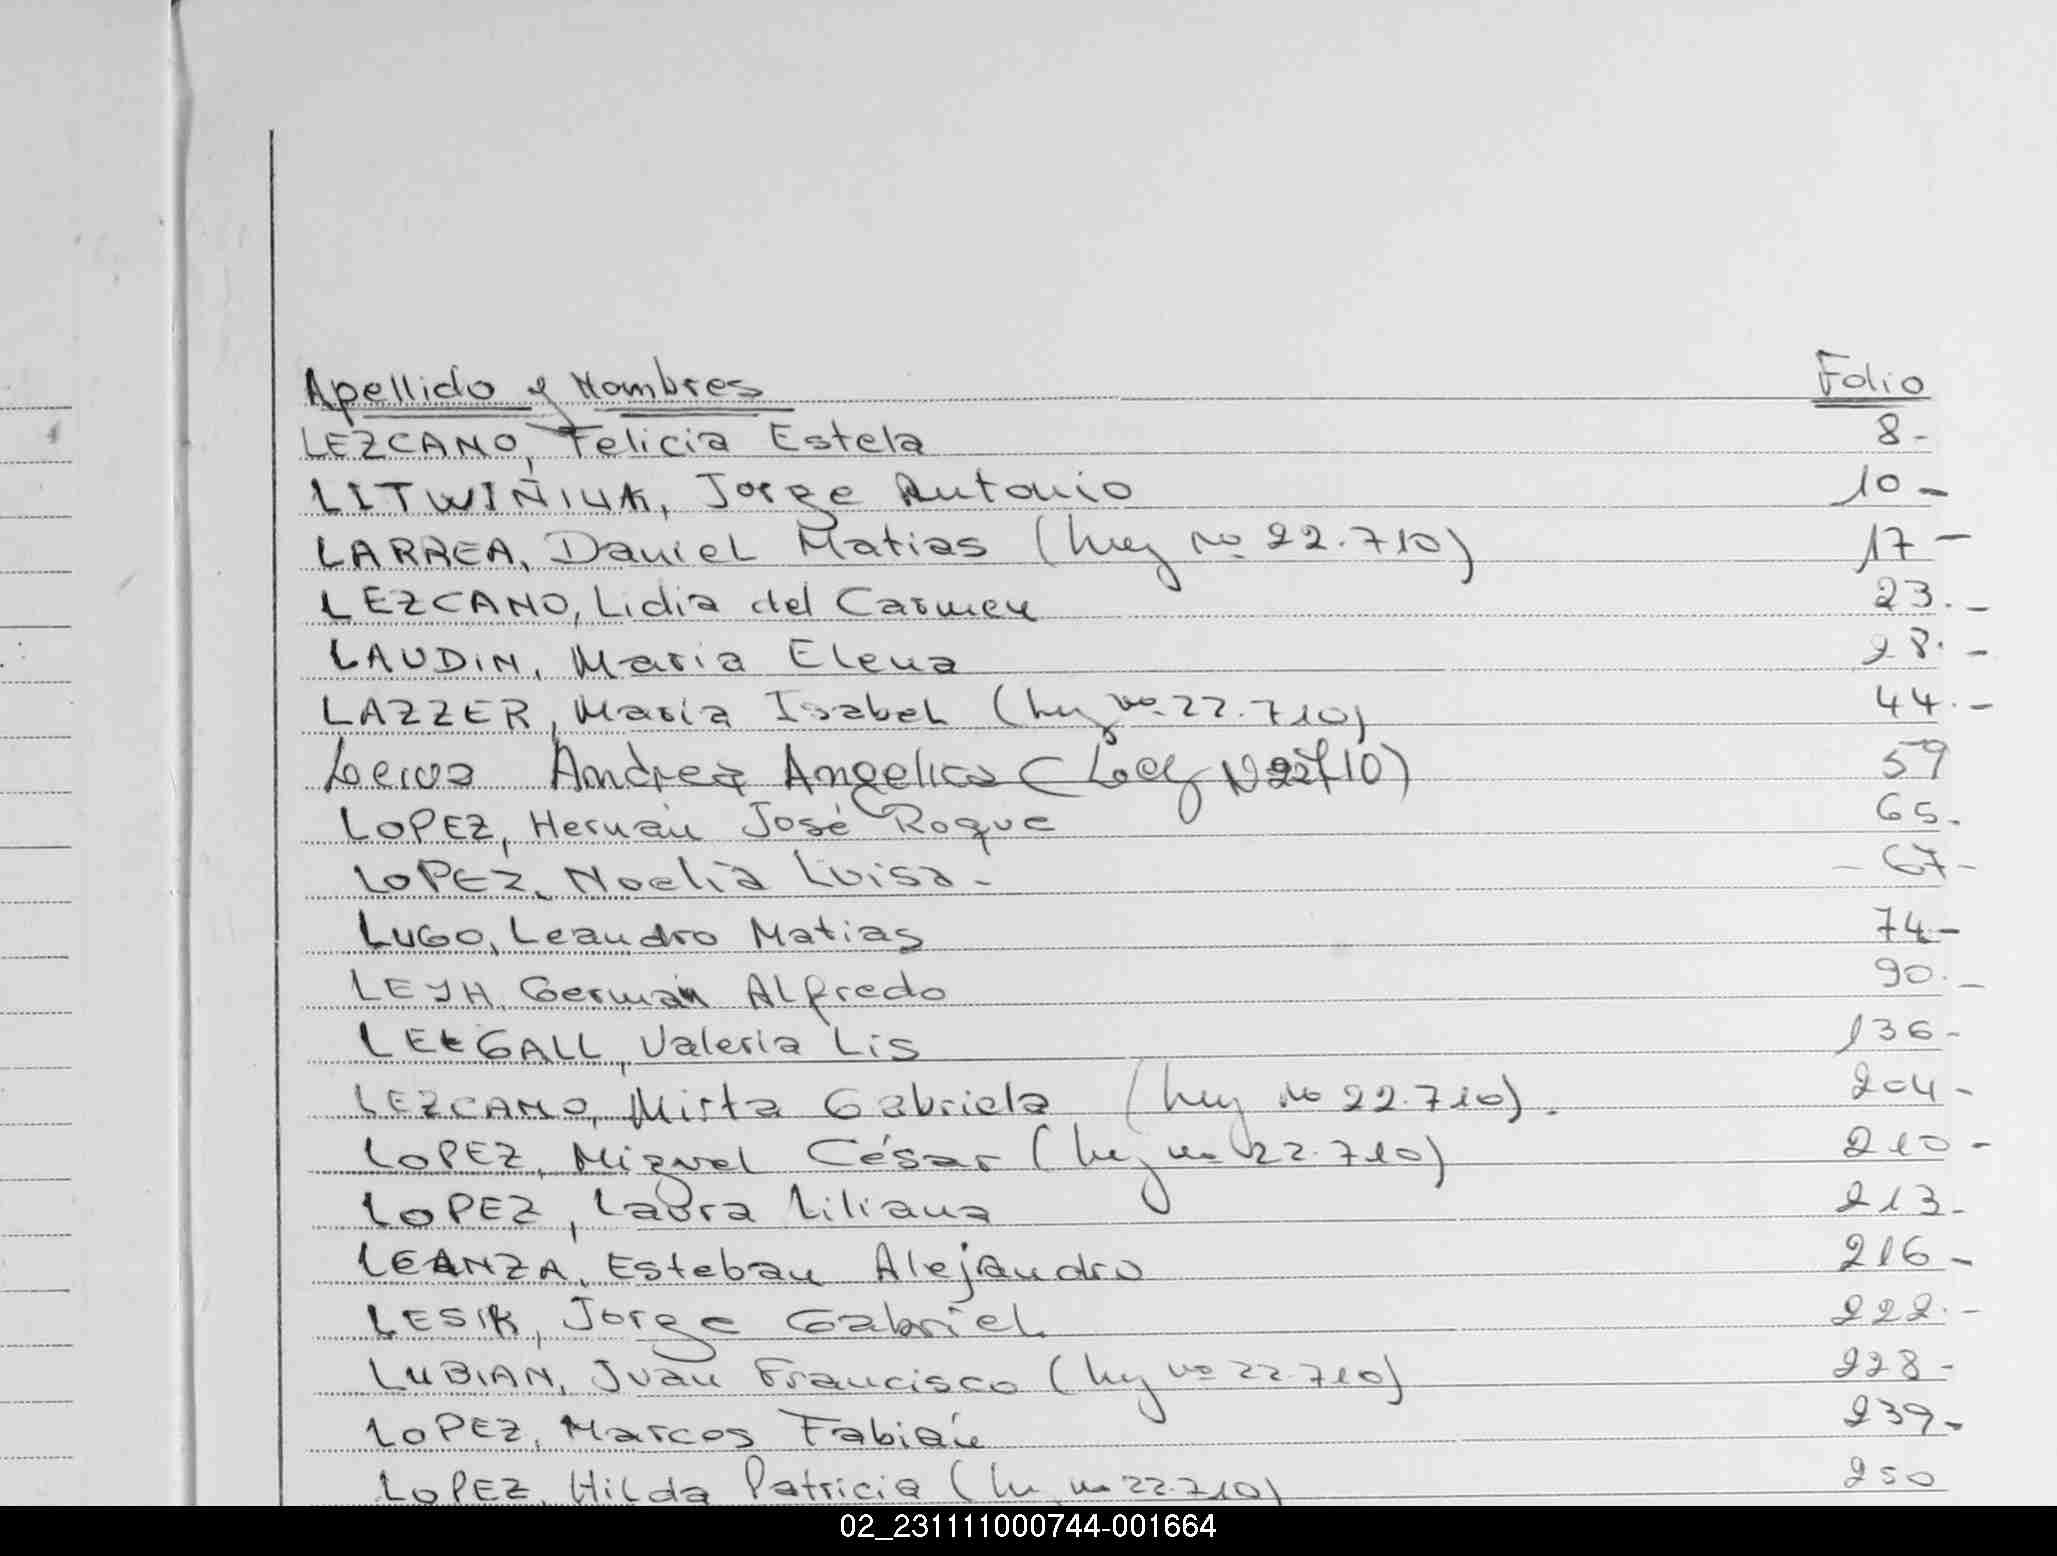 Apellido y Nombres Folio
LEZCANO, Felicia Estela 8-
LITWIÑIUK, Jorge Antonio 10-
LARREA, Daniel Matias (Ley No 22.710) 17-
LEZCANO, Lidia del Carmen 23.-
LAUDIN, Maria Elena 28.-
LAZZER, Maria Isabel (Ley no 22.710) 44.-
Leiva Andrea Angelica (Ley N 22710) 59
LOPEZ, Hernán José Roque 65.
LOPEZ, Noelia Luisa - -67-
LUGO, Leandro Matias 74-
LEYH, German Alfredo 90.-
LEGALL, Valeria Lis 136-
LEZCANO, Mirta Gabriela (Ley No 22.710). 204-
LOPEZ, Miguel César (Ley no 22.710) 210-
LOPEZ, Laura Liliana 213-
LEANZA, Esteban Alejandro 216-
LESIK, Jorge Gabriel 222.-
LUBIAN, Juan Francisco (Ley no 22.710) 228-
LOPEZ, Marcos Fabián 239-
LOPEZ, Hilda Patricia (Ley no 22.710) 250
02_231111000744-001664